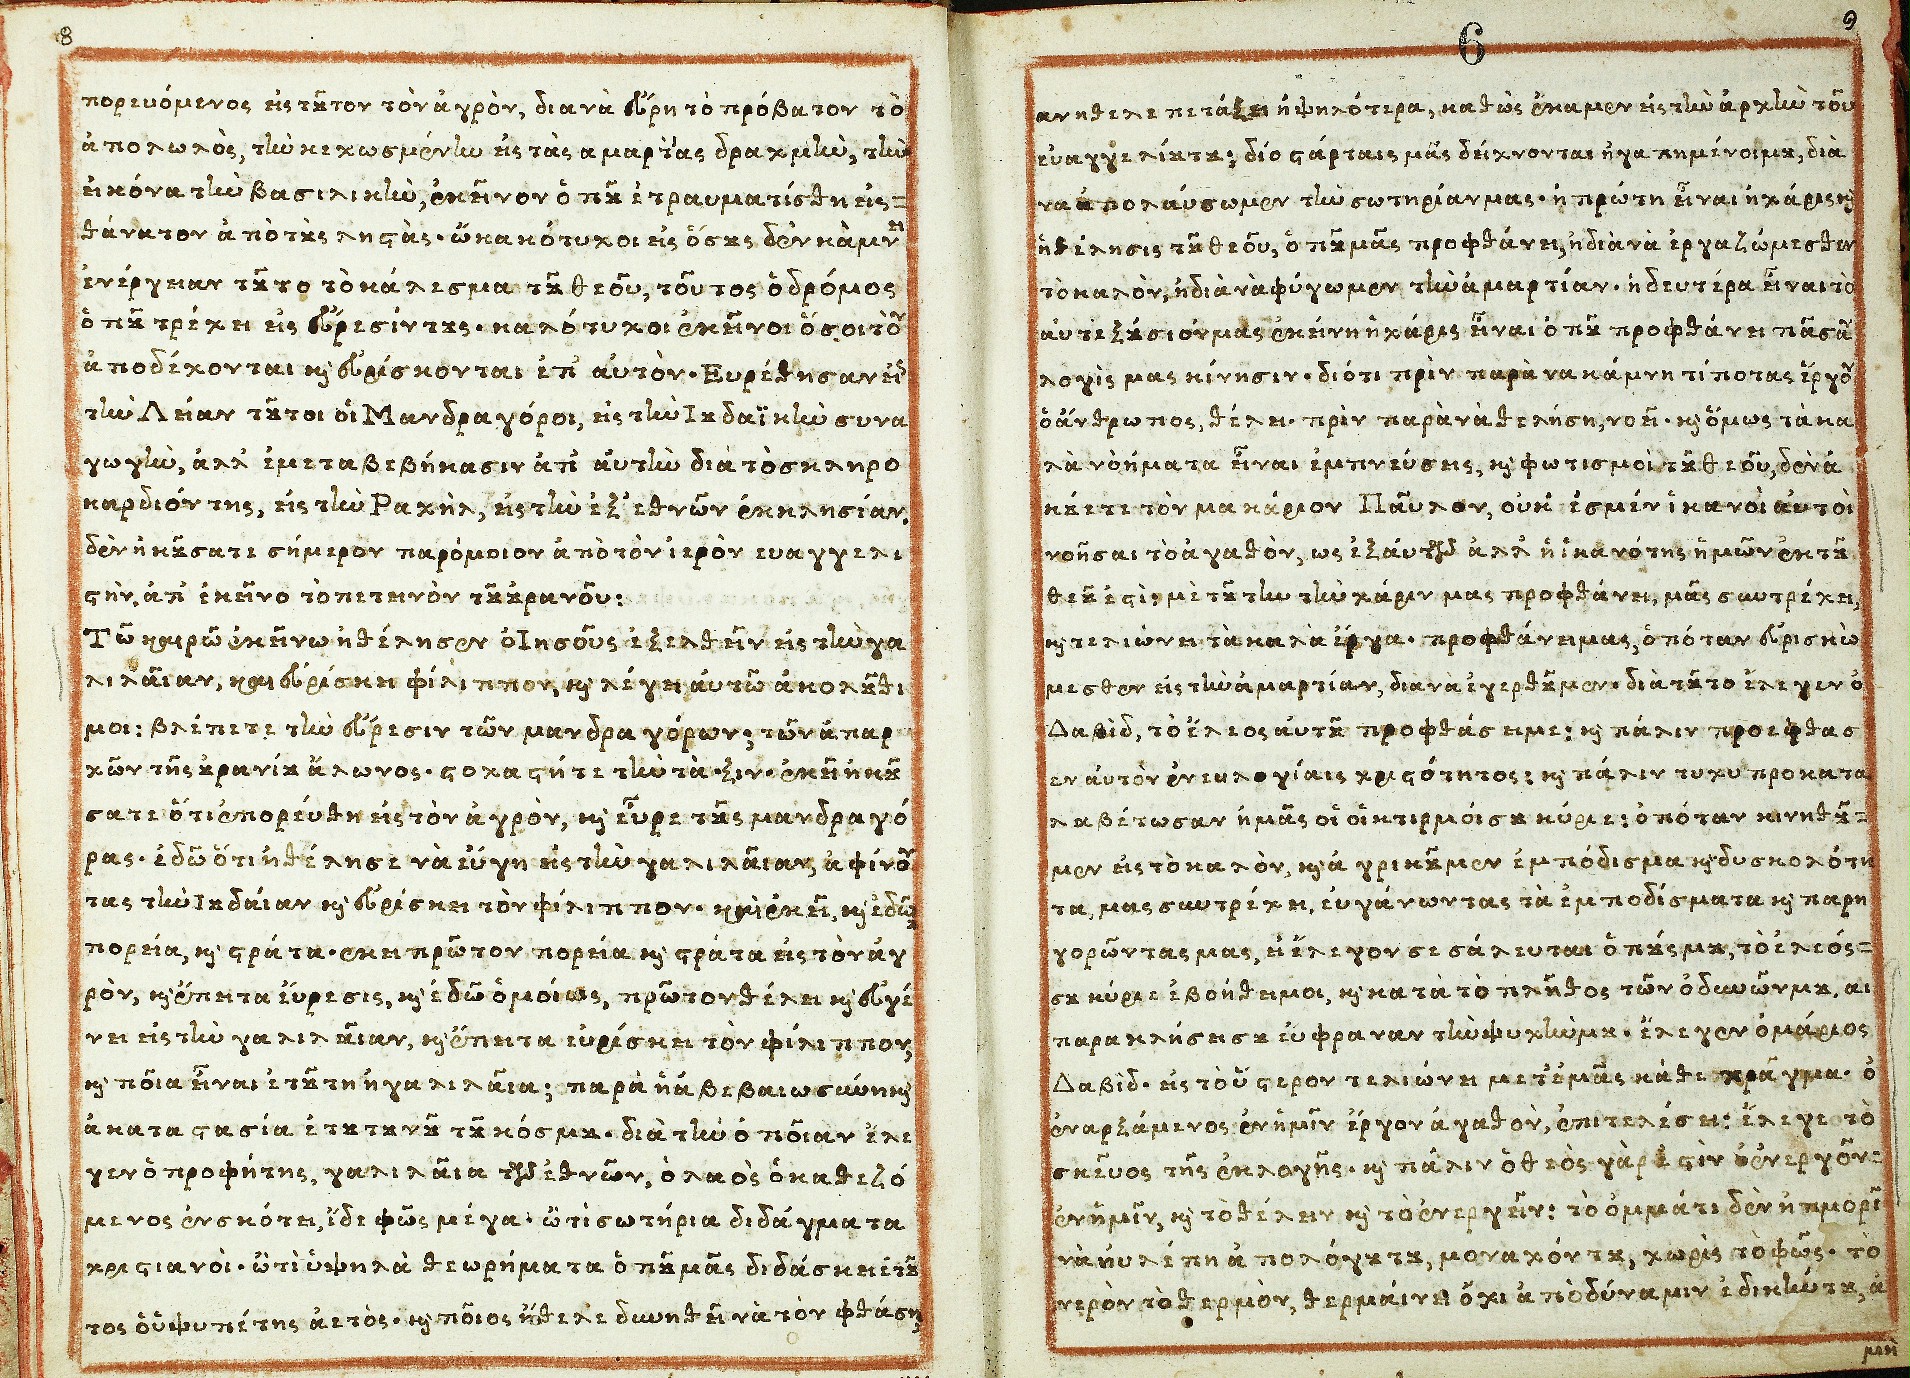 8
πορευόμενος εἰς τοῦτον τὸν ἀγρὸν, διανὰ εὕρη τὸ πρόβατον τὸ
ἀπολωλὸς, τὴν κεχωσμένην εἰς τὰς αμαρτίας δραχμὴν, τὴν
εἰκόνα τὴν βασιλικὴν, ἐκεῖνον ὁποῦ ἐτραυματίσθη εἰς=
θάνατον ἀπὸ τοὺς ληστὰς. ὤ κακότυχοι εἰς ὅσους δὲν κάμνει
ἐνέργειαν τοῦτο τὸ κάλεσμα τοῦ θεοῦ, τοῦτος ὁ δρόμος
ὁποῦ τρέχει εἰς εὕρεσίντους. καλότυχοι ἐκεῖνοι ὅσοι τὸν
ἀποδέχονται καὶ εὑρίσκονται ἐπ' αὐτὸν. Ευρέθησαν εἰς
τὴν Λείαν τοῦτοι οἱ Μανδραγόροι, εἰς τὴν Ιουδαϊκὴν συνα
γωγὴν, ἀλλ' ἐμεταβεβήκασιν ἀπ' αὐτὴν διὰ τὸ σκληρο
καρδιόν της, εἰς τὴν Ραχὴλ, εἰς τὴν ἐξ' εθνῶν ἐκκλησίαν.
δὲν ἠκούσατε σήμερον παρόμοιον ἀπὸ τὸν ἱερὸν ευαγγελι
στὴν, ἀπ' ἐκεῖνο τὸ πετεινὸν τοῦ οὐρανοῦ:
Τῶ καιρῶ ἐκεῖνω ἠθέλησεν ὁ Ιησοῦς ἐξελθεῖν εἰς τὴν γα
λιλαῖαν, καὶ εὑρίσκει φίλιππον, καὶ λέγει αὐτῶ ἀκολούθι
μοι: βλέπετε τὴν εὕρεσιν τῶν μανδραγόρων; τῶν ἀπαρ
χῶν τῆς οὐρανίου ἅλωνος. στοχαστῆτε τὴν τάξιν. ἐκεῖ ἠκού
σατε ὅτι ἐπορεύθη εἰς τὸν ἀγρὸν, καὶ εὗρε τοὺς μανδραγό
ρας. ἐδῶ ὅτι ἠθέλησε νὰ εὔγη εἰς τὴν γαλιλαῖαν, ἀφίνον
τας τὴν Ιουδαίαν καὶ εὑρίσκει τὸν φίλιππον. καὶ ἐκεῖ, καὶ ἐδῶ
πορεία, καὶ στράτα. εκει πρῶτον πορεία καὶ στράτα εἰς τὸν ἀγ
ρὸν, καὶ ἔπειτα εὕρεσις, καὶ ἐδῶ ὁμοίως, πρῶτον θέλει καὶ εὐγέ
νει εἰς τὴν γαλιλαῖαν, καὶ ἔπειτα εὑρίσκει τὸν φίλιππον,
καὶ ποῖα εἶναι ἐτούτη ἡ γαλιλαῖα; παρὰ ἡ ἀβεβαιωσύνη καὶ
ἀκαταστασία ἐτουτουνοῦ τοῦ κόσμου. διὰ τὴν ὁποῖαν ἔλε
γεν ὁ προφήτης, γαλιλαῖα τῶν ἐθνῶν, ὁ λαὸς ὁ καθεζό
μενος ἐν σκότει, ἴδε φῶς μέγα. ὢ τὶ σωτήρια διδάγματα
χριστιανοὶ. ὢ τὶ ὑψηλὰ θεωρήματα ὁποῦ μᾶς διδάσκει ἐτοῦ
τος ὁ ὑψυπέτης ἀετὸς. καὶ ποῖος ἤθελε δυνηθεῖ νὰ τὸν φθάση,
6
9
αν ηθελε πετάξει ἡψηλότερα, καθὼς ἔκαμεν εἰς τὴν ἀρχὴν τοῦ
εὐαγγελίου του; δίο στάρταις μᾶς δείχνονται ἠγαπημένοιμου, διὰ
να ἀπολαύσωμεν τὴν σωτηρίαν μας. ἡ πρώτη εἶναι ἡ χάρις καὶ
ἡ θέλησις τοῦ θεοῦ, ὁποῦ μᾶς προφθάνει, ἢ διὰνὰ ἐργαζώμεσθεν
τὸ καλὸν, ἢ διὰνὰ φύγωμεν τὴν ἁμαρτίαν. ἡ δευτέρα εἶναι τὸ
αὐτεξούσιόν μας ἐκείνη ἡ χάρις εἶναι ὁποῦ προφθάνει πᾶσαν
λογὶς μας κίνησιν. διότι πρὶν παρὰ να κάμνη τίποτας ἔργον
ὁ ἄνθρωπος, θέλει. πρὶν παρὰ νὰ θελήση, νοεῖ. καὶ ὅμως τὰ κα
λὰ νοήματα εἶναι ἐμπνεύσεις, καὶ φωτισμοὶ τοῦ θεοῦ, δὲν ἀ
κούετε τὸν μακάριον Παῦλον, οὐκ' ἐσμέν ἱκανοὶ ἀυτοὶ
νοῆσαι τὸ ἀγαθὸν, ως ἐξ ἀυτῶν ἀλλ' ἡ ἱκανότης ἡμῶν ἐκ τοῦ
θεοῦ ἐστὶ; μὲ τούτην τὴν χάριν μας προφθάνει, μᾶς συντρέχει,
καὶ τελιώνει τὰ καλὰ ἔργα. προφθάνει μας, ὁπόταν εὑρισκὼ
μεσθεν εἰς τὴν ἁμαρτίαν, διανὰ ἐγερθοῦμεν. διὰ τοῦτο ἔλεγεν ὁ
Δαβὶδ, τὸ ἔλεος αὐτοῦ προφθάσειμε; καὶ πάλιν προεφθασ
εν αὐτὸν ἐν ευλογίαις χρηστότητος; καὶ πάλιν τυχυ προκατα
λαβέτωσαν ἡμᾶς οἱ οἰκτιρμόι σου κύριε; ὁπόταν κινηθοῦ=
μεν εἰς τὸ καλὸν, καὶ ἀγρικοῦμεν ἐμπόδισμα καὶ δυσκολότη
τα, μας συντρέχει, εὐγάνωντας τὰ ἐμποδίσματα καὶ παρη
γορῶντας μας, εἰ ἔλεγον σεσάλευται ὁ ποὺς μου, τὸ ἐλεός=
σου κύριε ἐβοήθειμοι, καὶ κατὰ τὸ πλῆθος τῶν ὀδυνῶνμου, αι
παρακλήσεισου ἐυφραναν τὴν ψυχὴν μου. ἔλεγεν ὁ μάριος
Δαβὶδ. εἰς τὸ ὕστερον τελιώνει μετ' ἐμᾶς κάθε πρᾶγμα. ὁ
ἐναρξάμενος ἐν ἡμῖν ἔργον ἀγαθὸν, ἐπιτελέσει: ἔλεγε τὸ
σκεῦος τῆς ἐκλογῆς. καὶ πάλιν ὁ θεὸς γὰρ ἐστὶν ὁ ἐνεργῶν=
ἐν ἡμῖν, καὶ τὸ θέλειν καὶ τὸ ἐνεργεῖν: τὸ ὀμμάτι δὲν ἠμπορεῖ
νὰ ἠυλέπη ἀπολόγουτου, μοναχόντου, χωρὶς τὸ φῶς. τὸ
νερὸν τὸ θερμὸν, θερμαίνει ὄχι ἀπὸ δύναμιν ἐδικήντου, ἀ
μὴ